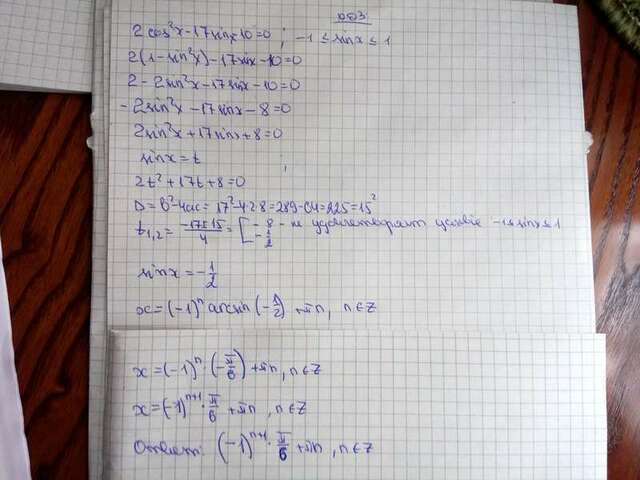 ОДЗ
2cos²x-17sinx-10=0; -1≤sinx≤1
2(1-sin²x)-17sinx-10=0
2-2sin²x-17sinx-10=0
-2sin²x-17sinx-8=0
2sin²x+17sinx+8=0
sinx=t
2t²+17t+8=0
D=b²-4ac=17²-4·2·8=289-64=225=15²
t₁,₂= (-17±15)/4 = [ -8 - не удовлетворяет условие -1≤sinx≤1
-1/2
sinx=-1/2
x=(-1)ⁿ arcsin(-1/2)+πn, n∈Z
x=(-1)ⁿ(-π/6)+πn, n∈Z
x=(-1)ⁿ⁺¹·π/6+πn, n∈Z
Ответ: (-1)ⁿ⁺¹·π/6+πn, n∈Z